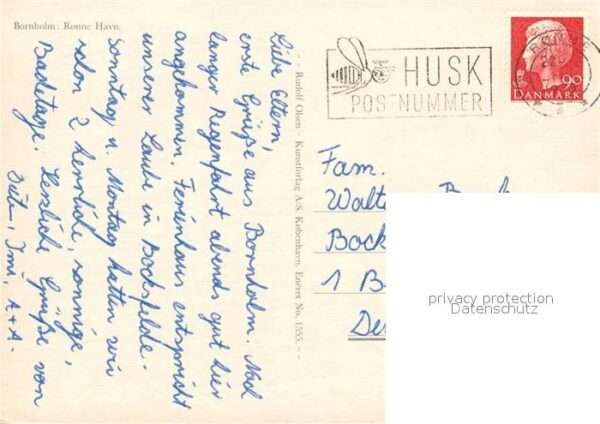 Bornholm: Rønne Havn.
Liebe Eltern,
erste Grüße aus Bornholm. Nach
langer Regenfahrt abends gut hier
angekommen, Ferienhaus entspricht
unserer Laube in Bocksfelde.
Sonntag u. Montag hatten wir
schon 2 herrliche, sonnige,
Badetage. Herzliche Grüße von
Imi, A + A.
- - Rudolf Olsen - Kunstforlag A/S. København. Eneret No. 1555. - -
HUSK
POSTNUMMER
RØNNE
90
DANMARK
Fam.
Walt
Bock
1 B
De
privacy protection
Datenschutz